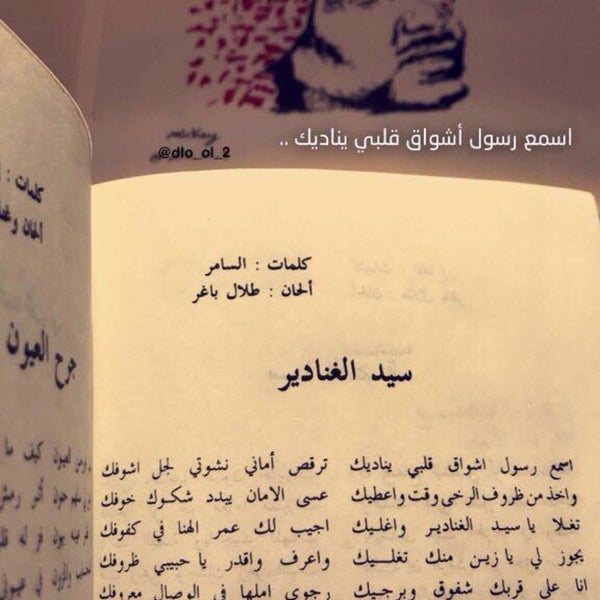 اسمع رسول أشواق قلبي يناديك ..
@dlo_ol_2
كلمات : السامر
ألحان : طلال باغر
سيد الغنادير
اسمع رسول اشواق قلبي يناديك ترقص أماني نشوتي لجل اشوفك
واخذ من ظروف الرخى وقت واعطيك عسى الامان يبدد شكوك خوفك
تغلا يا سيد الغنادير واغليك اجيب لك عمر الهنا في كفوفك
يجوز لي يا زين منك تغليك واعرف واقدر يا حبيبي ظروفك
انا على قربك شفوق وبرجيك رجوى املها في الوصال معروفك
كلمات :
ألحان
جرح العيون
العيون كيف ما